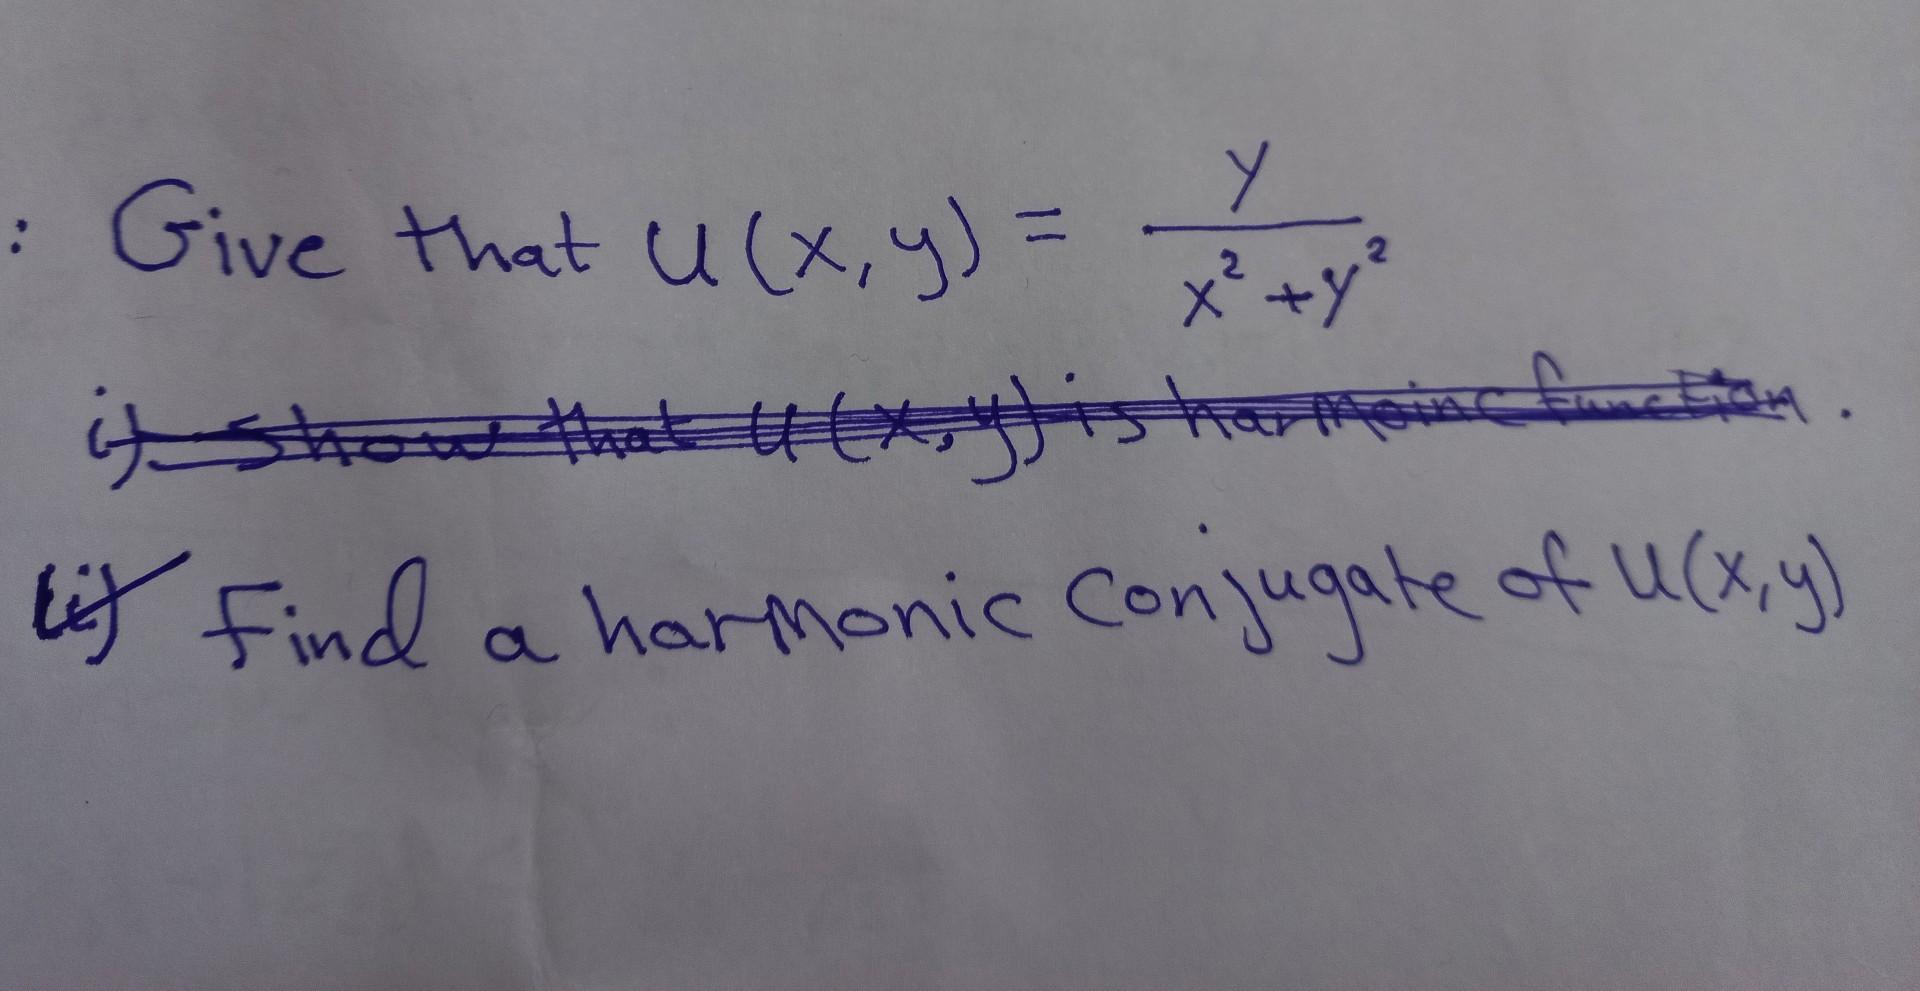 : Give that u(x,y) = y / x² + y²
i) Show that u(x,y) is harmoinc function.
ii) Find a harmonic Conjugate of u(x,y)